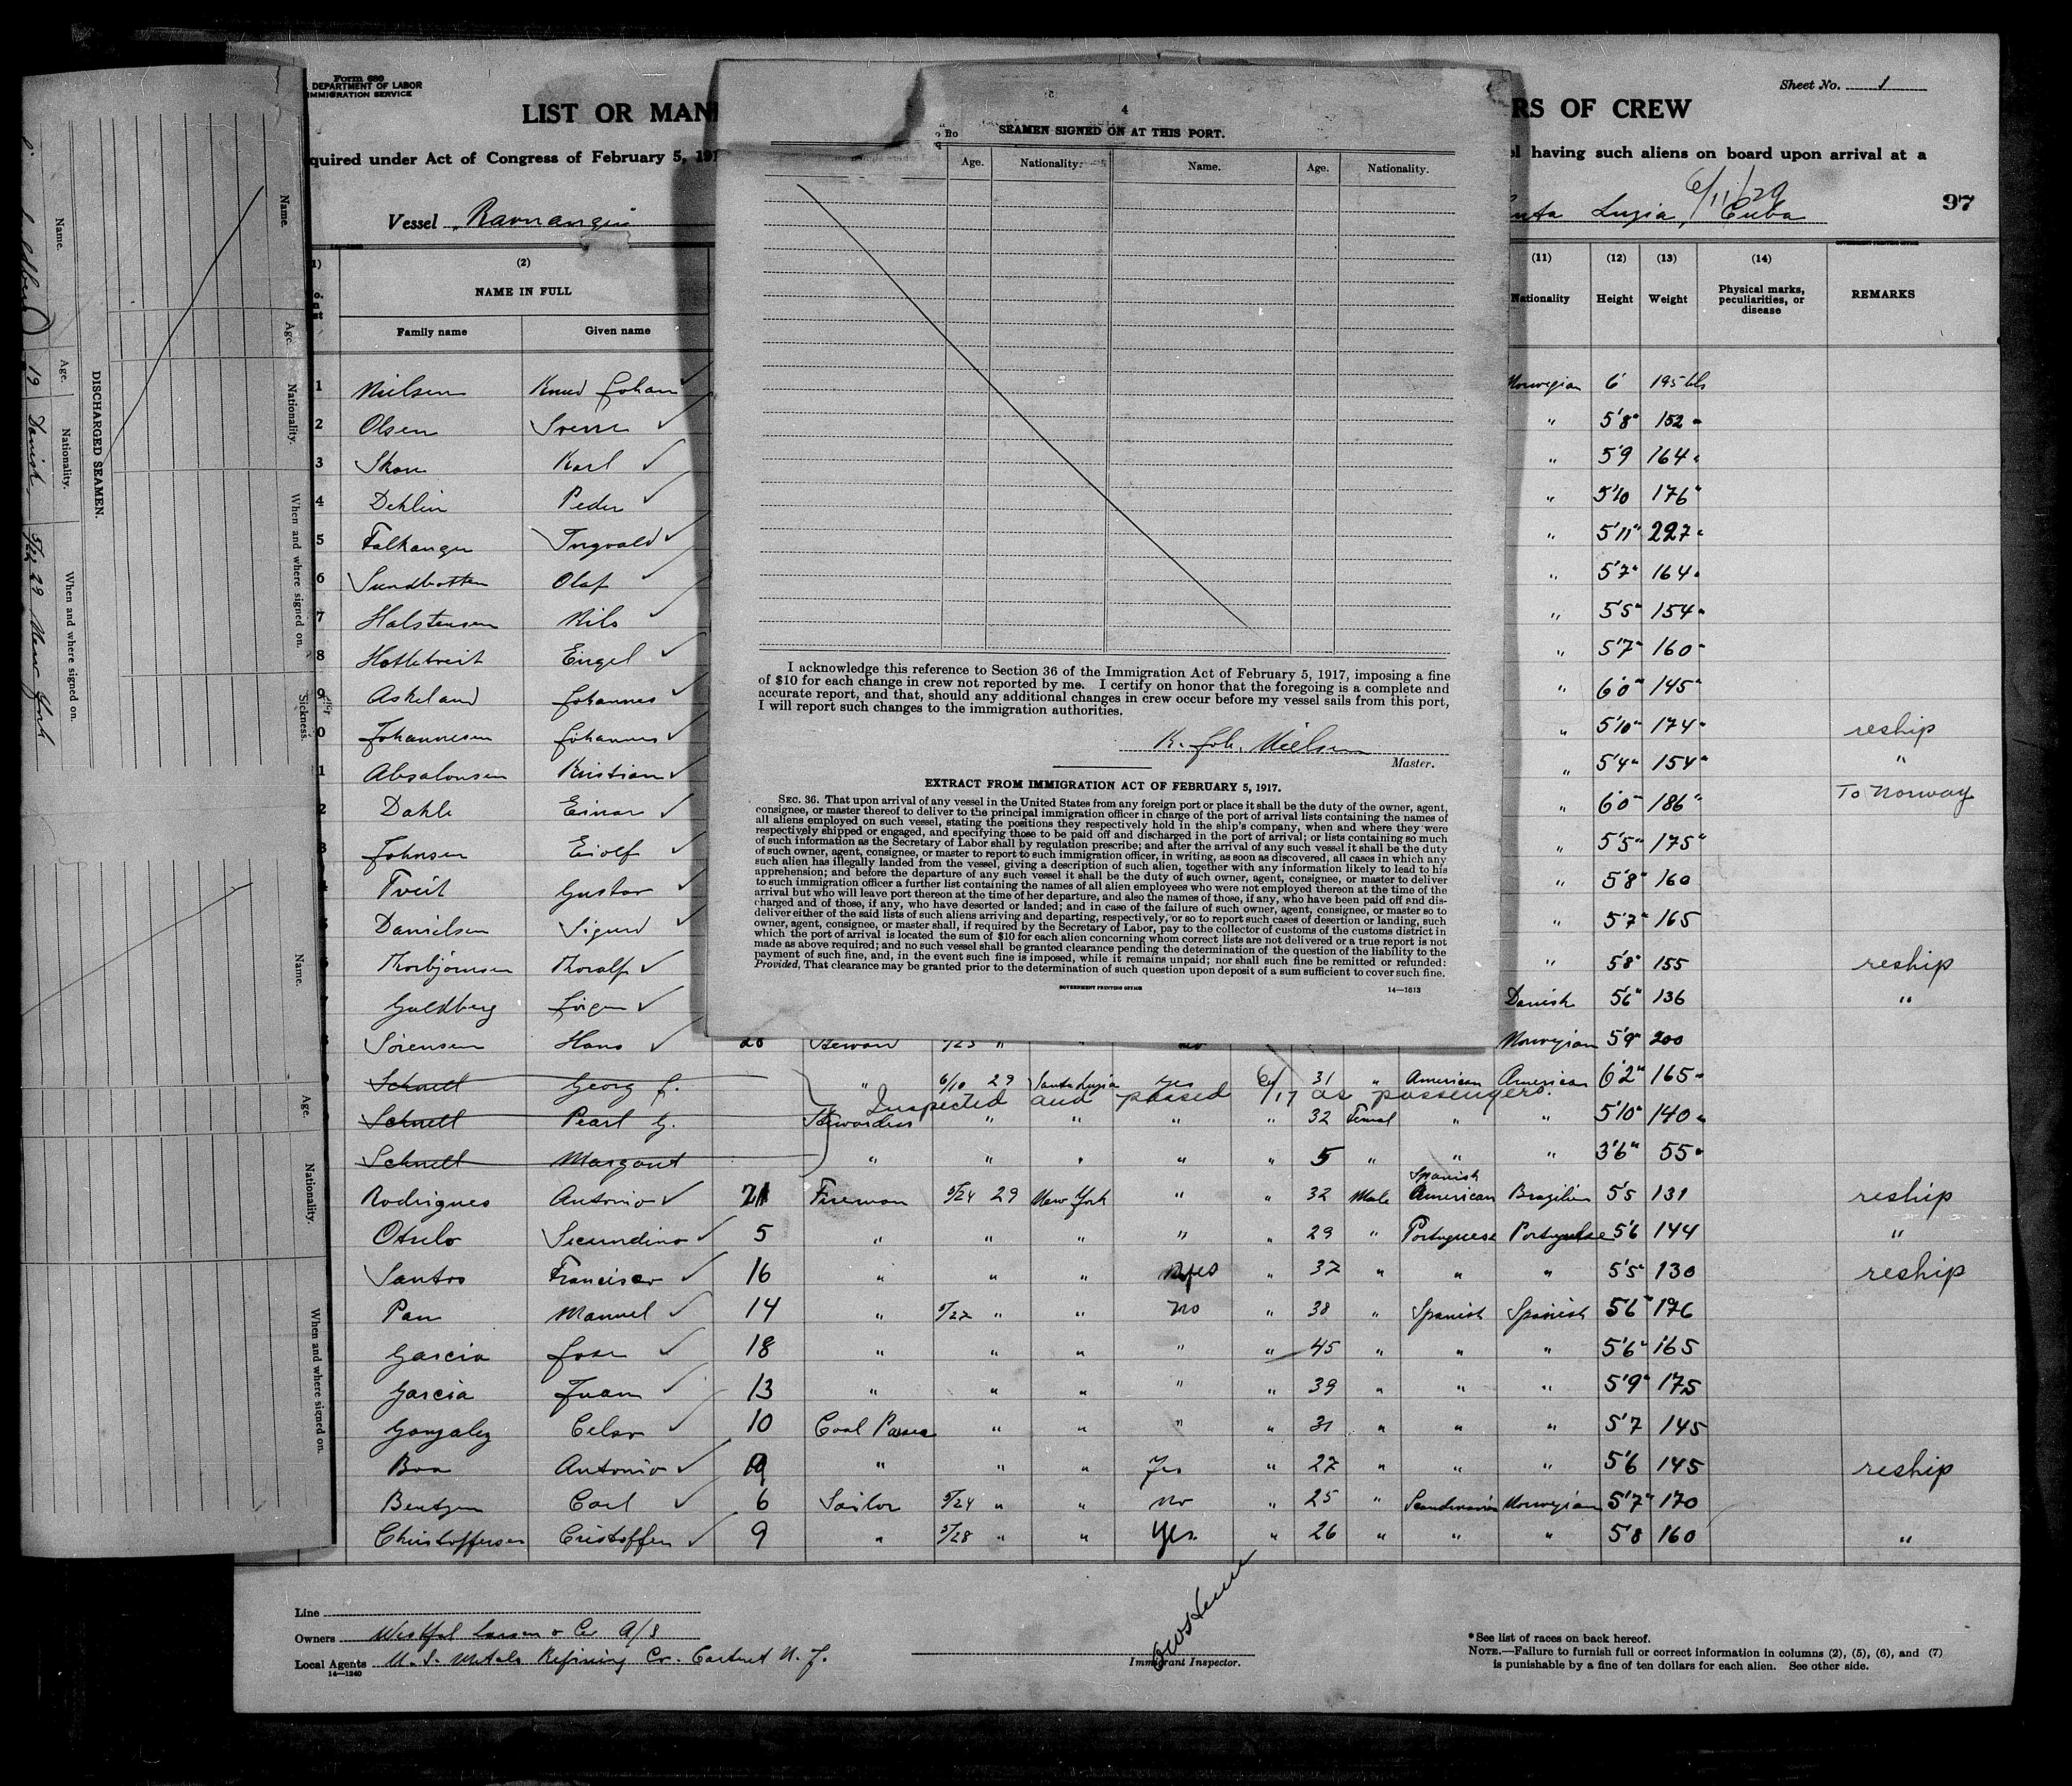 Form 680
DEPARTMENT OF LABOR
IMMIGRATION SERVICE
Sheet No. 1
LIST OR MAN
RS OF CREW
quired under Act of Congress of February 5, 191
having such aliens on board upon arrival at a
Vessel
Luzia, Cuba
6/11/29
97
(2)
NAME IN FULL
Family name Given name
(11) (12) (13) (14)
Nationality Height Weight Physical marks, peculiarities, or disease REMARKS
1 Nielsen Knud Johan Norwegian 6' 195 lbs
2 Olsen Sverre " 5'8" 152 "
3 Karl " 5'9 164 "
4 Dehlin Peder " 5'10 176 "
5 Falkanger Ingvald " 5'11" 227 "
6 Sundbotten Olaf " 5'7" 164 "
7 Halstensen Nils " 5'5" 154 "
8 Engel " 5'7" 160 "
9 Askeland Johannes " 6'0" 145 "
0 Johannesen Johannes " 5'10" 174 " reship
1 Absalonsen Kristian " 5'4" 154 " "
2 Dahle Einar " 6'0" 186 " To Norway
3 Johnsen Eiolf " 5'5" 175 "
4 Tveit Gustav " 5'8" 160
5 Danielsen Sigurd " 5'7" 165
6 Thorbjörnsen Thoralf " 5'8" 155 reship
7 Guldberg Danish 5'6" 136 "
8 Sörensen Hans Steward Norwegian 5'9" 200
Schnell Georg J. " 6/10 29 Santa Luzia yes 31 " American American 6'2" 165 "
Inspected and passed 6/17 as passengers.
Schnell Pearl G. Stewardess " " " " 32 Femal " " 5'10" 140 "
Schnell Margaret " " " " " 5 " " " 3'6" 55 "
Rodrigues Antonio 21 Fireman 5/24 29 New York " " 32 Male Spanish American Brazilian 5'5 131 reship
Otulo Secundino 5 " " " " " 29 " Portuguese Portuguese 5'6 144 "
Santos Francisco 16 " " " yes " 37 " " " 5'5" 130 reship
Pan Manuel 14 " 5/27 " " no " 38 " Spanish Spanish 5'6" 176
Garcia Jose 18 " " " " " 45 " " " 5'6" 165
Garcia Juan 13 " " " " " 39 " " " 5'9" 175
Gonzalez Celso 10 Coal Passer " " " " 31 " " " 5'7 145
Boo Antonio " " " Yes " 27 " " " 5'6 145 reship
Bentzen Carl 6 Sailor 5/24 " " no " 25 " Scandinavian Norwegian 5'7" 170
Christoffersen Cristoffer 9 " 5/28 " " Yes " 26 " " " 5'8 160 "
Line
Owners Westfal Larsen & Co A/S
Local Agents U.S. Metals Refining Co. Carteret N.J.
14—1240
Immigrant Inspector.
*See list of races on back hereof.
NOTE.—Failure to furnish full or correct information in columns (2), (5), (6), and (7)
is punishable by a fine of ten dollars for each alien. See other side.
4
SEAMEN SIGNED ON AT THIS PORT.
Age. Nationality. Name. Age. Nationality.
I acknowledge this reference to Section 36 of the Immigration Act of February 5, 1917, imposing a fine
of $10 for each change in crew not reported by me. I certify on honor that the foregoing is a complete and
accurate report, and that, should any additional changes in crew occur before my vessel sails from this port,
I will report such changes to the immigration authorities.
K. Joh. Nielsen
Master.
EXTRACT FROM IMMIGRATION ACT OF FEBRUARY 5, 1917.
SEC. 36. That upon arrival of any vessel in the United States from any foreign port or place it shall be the duty of the owner, agent,
consignee, or master thereof to deliver to the principal immigration officer in charge of the port of arrival lists containing the names of
all aliens employed on such vessel, stating the positions they respectively hold in the ship's company, when and where they were
respectively shipped or engaged, and specifying those to be paid off and discharged in the port of arrival; or lists containing so much
of such information as the Secretary of Labor shall by regulation prescribe; and after the arrival of any such vessel it shall be the duty
of such owner, agent, consignee, or master to report to such immigration officer, in writing, as soon as discovered, all cases in which any
such alien has illegally landed from the vessel, giving a description of such alien, together with any information likely to lead to his
apprehension; and before the departure of any such vessel it shall be the duty of such owner, agent, consignee, or master to deliver
to such immigration officer a further list containing the names of all alien employees who were not employed thereon at the time of the
arrival but who will leave port thereon at the time of her departure, and also the names of those, if any, who have been paid off and dis-
charged and of those, if any, who have deserted or landed; and in case of the failure of such owner, agent, consignee, or master so to
deliver either of the said lists of such aliens arriving and departing, respectively, or so to report such cases of desertion or landing, such
owner, agent, consignee, or master shall, if required by the Secretary of Labor, pay to the collector of customs of the customs district in
which the port of arrival is located the sum of $10 for each alien concerning whom correct lists are not delivered or a true report is not
made as above required; and no such vessel shall be granted clearance pending the determination of the question of the liability to the
payment of such fine, and, in the event such fine is imposed, while it remains unpaid; nor shall such fine be remitted or refunded:
Provided, That clearance may be granted prior to the determination of such question upon deposit of a sum sufficient to cover such fine.
GOVERNMENT PRINTING OFFICE
14—1613
Name. Age. Nationality. When and where signed on. Sickness.
DISCHARGED SEAMEN.
Name. Age. Nationality. When and where signed on.
19 Danish 29 New York
Name. Age. Nationality. When and where signed on.